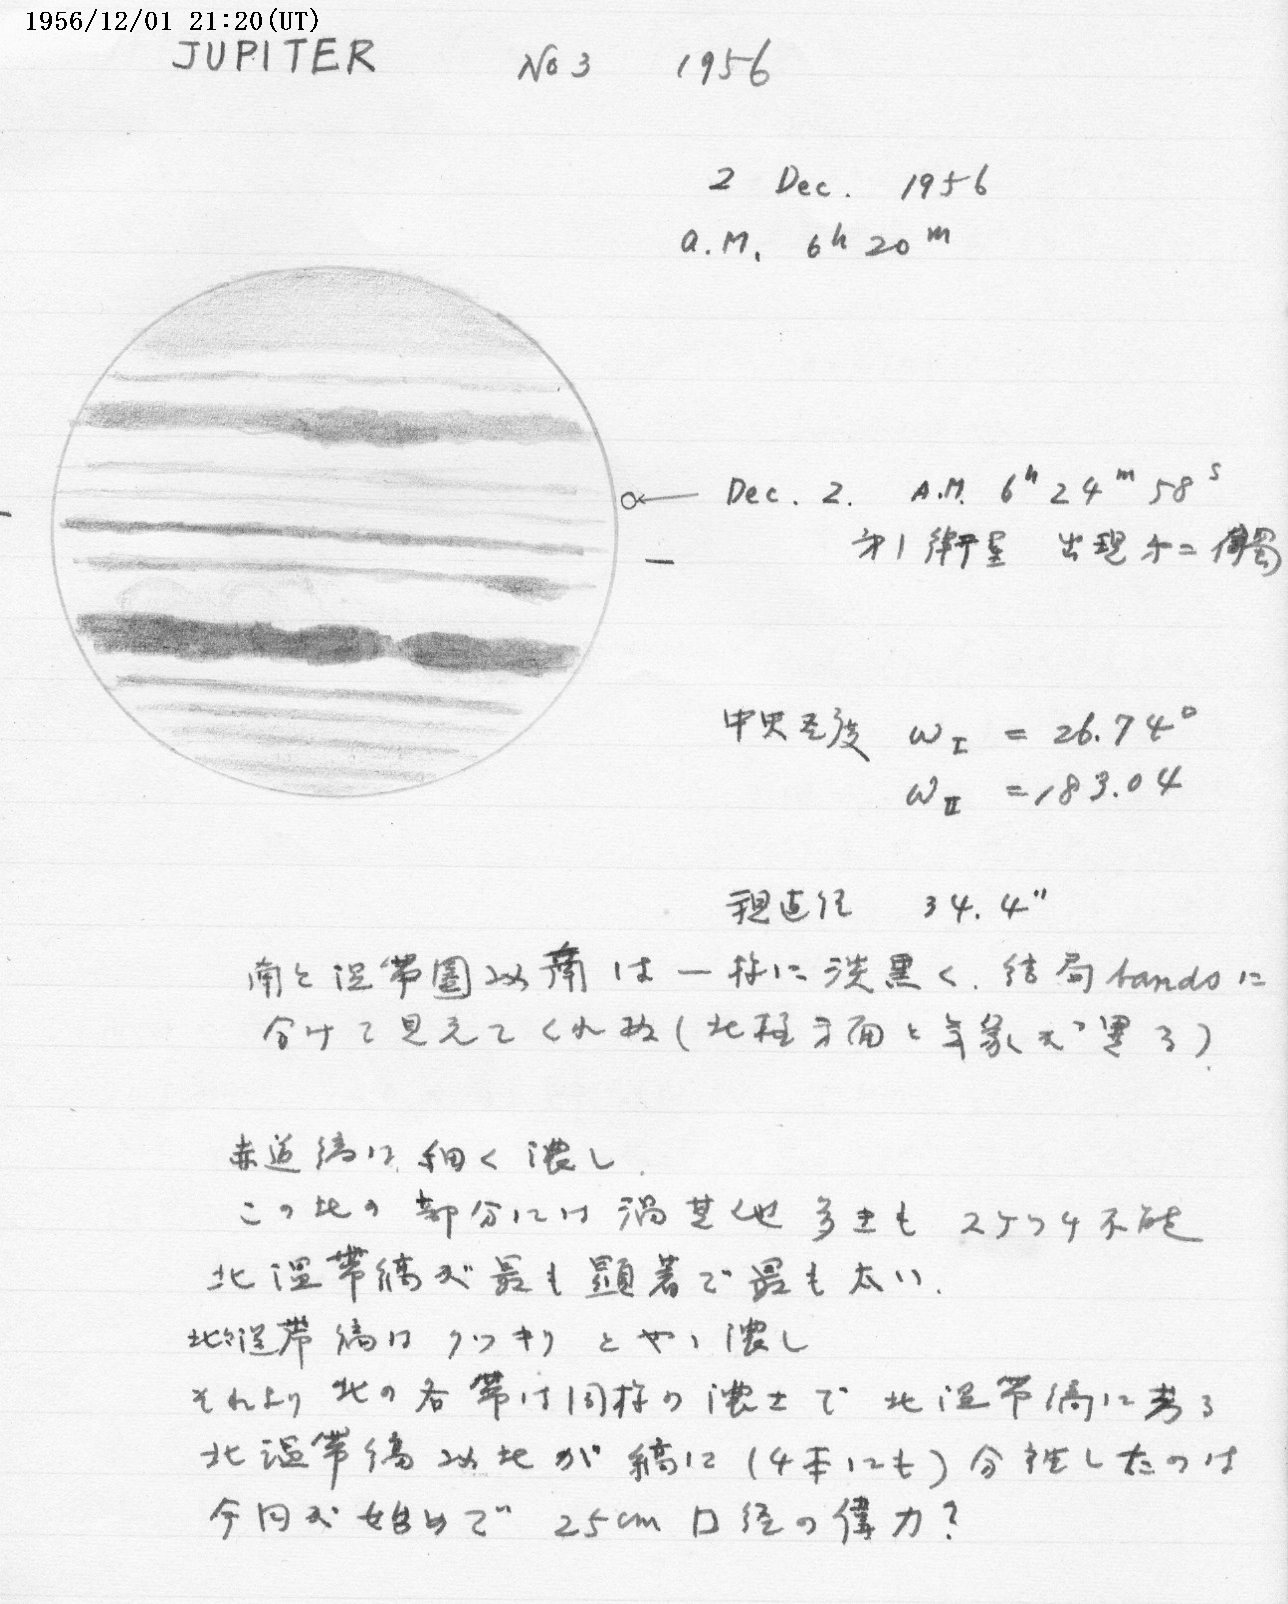 1956/12/01 21:20(UT)
JUPITER No 3 1956
2 Dec. 1956
a.m. 6h 20m
Dec. 2. A.M. 6h 24m 58s
才1衛星 出現
中央経度 ωI = 26.74°
ωII = 183.04
視直径 34.4"
南々温帯圏以南は一様に淡黒く、結局bandsに
分けて見えてくれぬ(北極方面と気象が異る)
赤道縞は細く濃し.
この北の部分には渦其他多きもスケッチ不能
北温帯縞が最も顕著で最も太い.
北々温帯縞はクッキリとやゝ濃し
それより北の各帯は同様の濃さで北温帯縞に
北温帯縞以北が縞に(4本にも)分離したのは
今回が始めで 25cm口径の偉力?